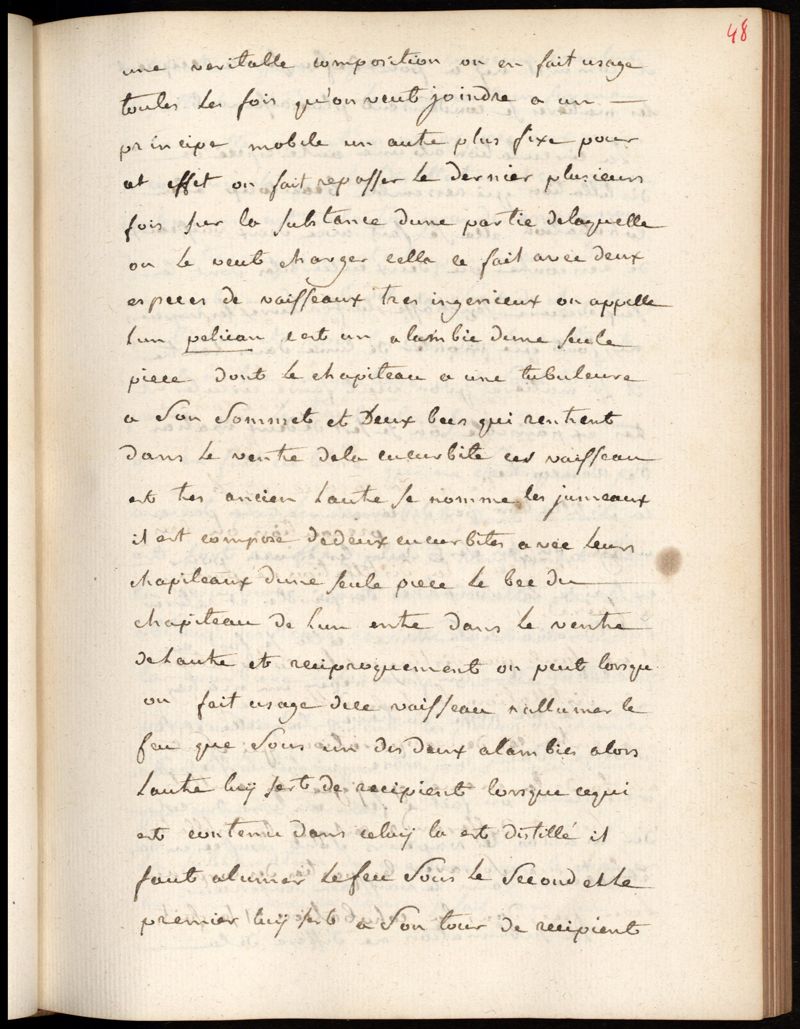 48
une veritable composition on en fait usage
toutes les fois qu'on veut joindre a un —
principe mobile un autre plus fixe pour
et effet on fait repasser le dernier plusieurs
fois sur la substance dune partie delaquelle
on le veut charger cella ce fait avec deux
especes de vaisseaux tres ingenieux on appelle
lun pelican cest un alambic dune seule
piece dont le chapiteau a une tubuleure
a son sommet et Deux becs qui rentrent
dans le ventre dela cucurbite ces vaisseau
est tres ancien lautre se nomme les jumeaux
il est composé dedeux cucurbites avec leurs
chapiteaux dune seule piece le bec du —
chapiteau de lun entre dans le ventre
delautre et reciproquement on peut lorsque
on fait usage dece vaisseau nallumer le
feu que sous un des deux alambics alors
lautre luy sert de recipient lorsque cequi
est contenu dans celuy la est distillé il
faut alumer le feu sous le second et le
premier luy sert a son tour de recipient